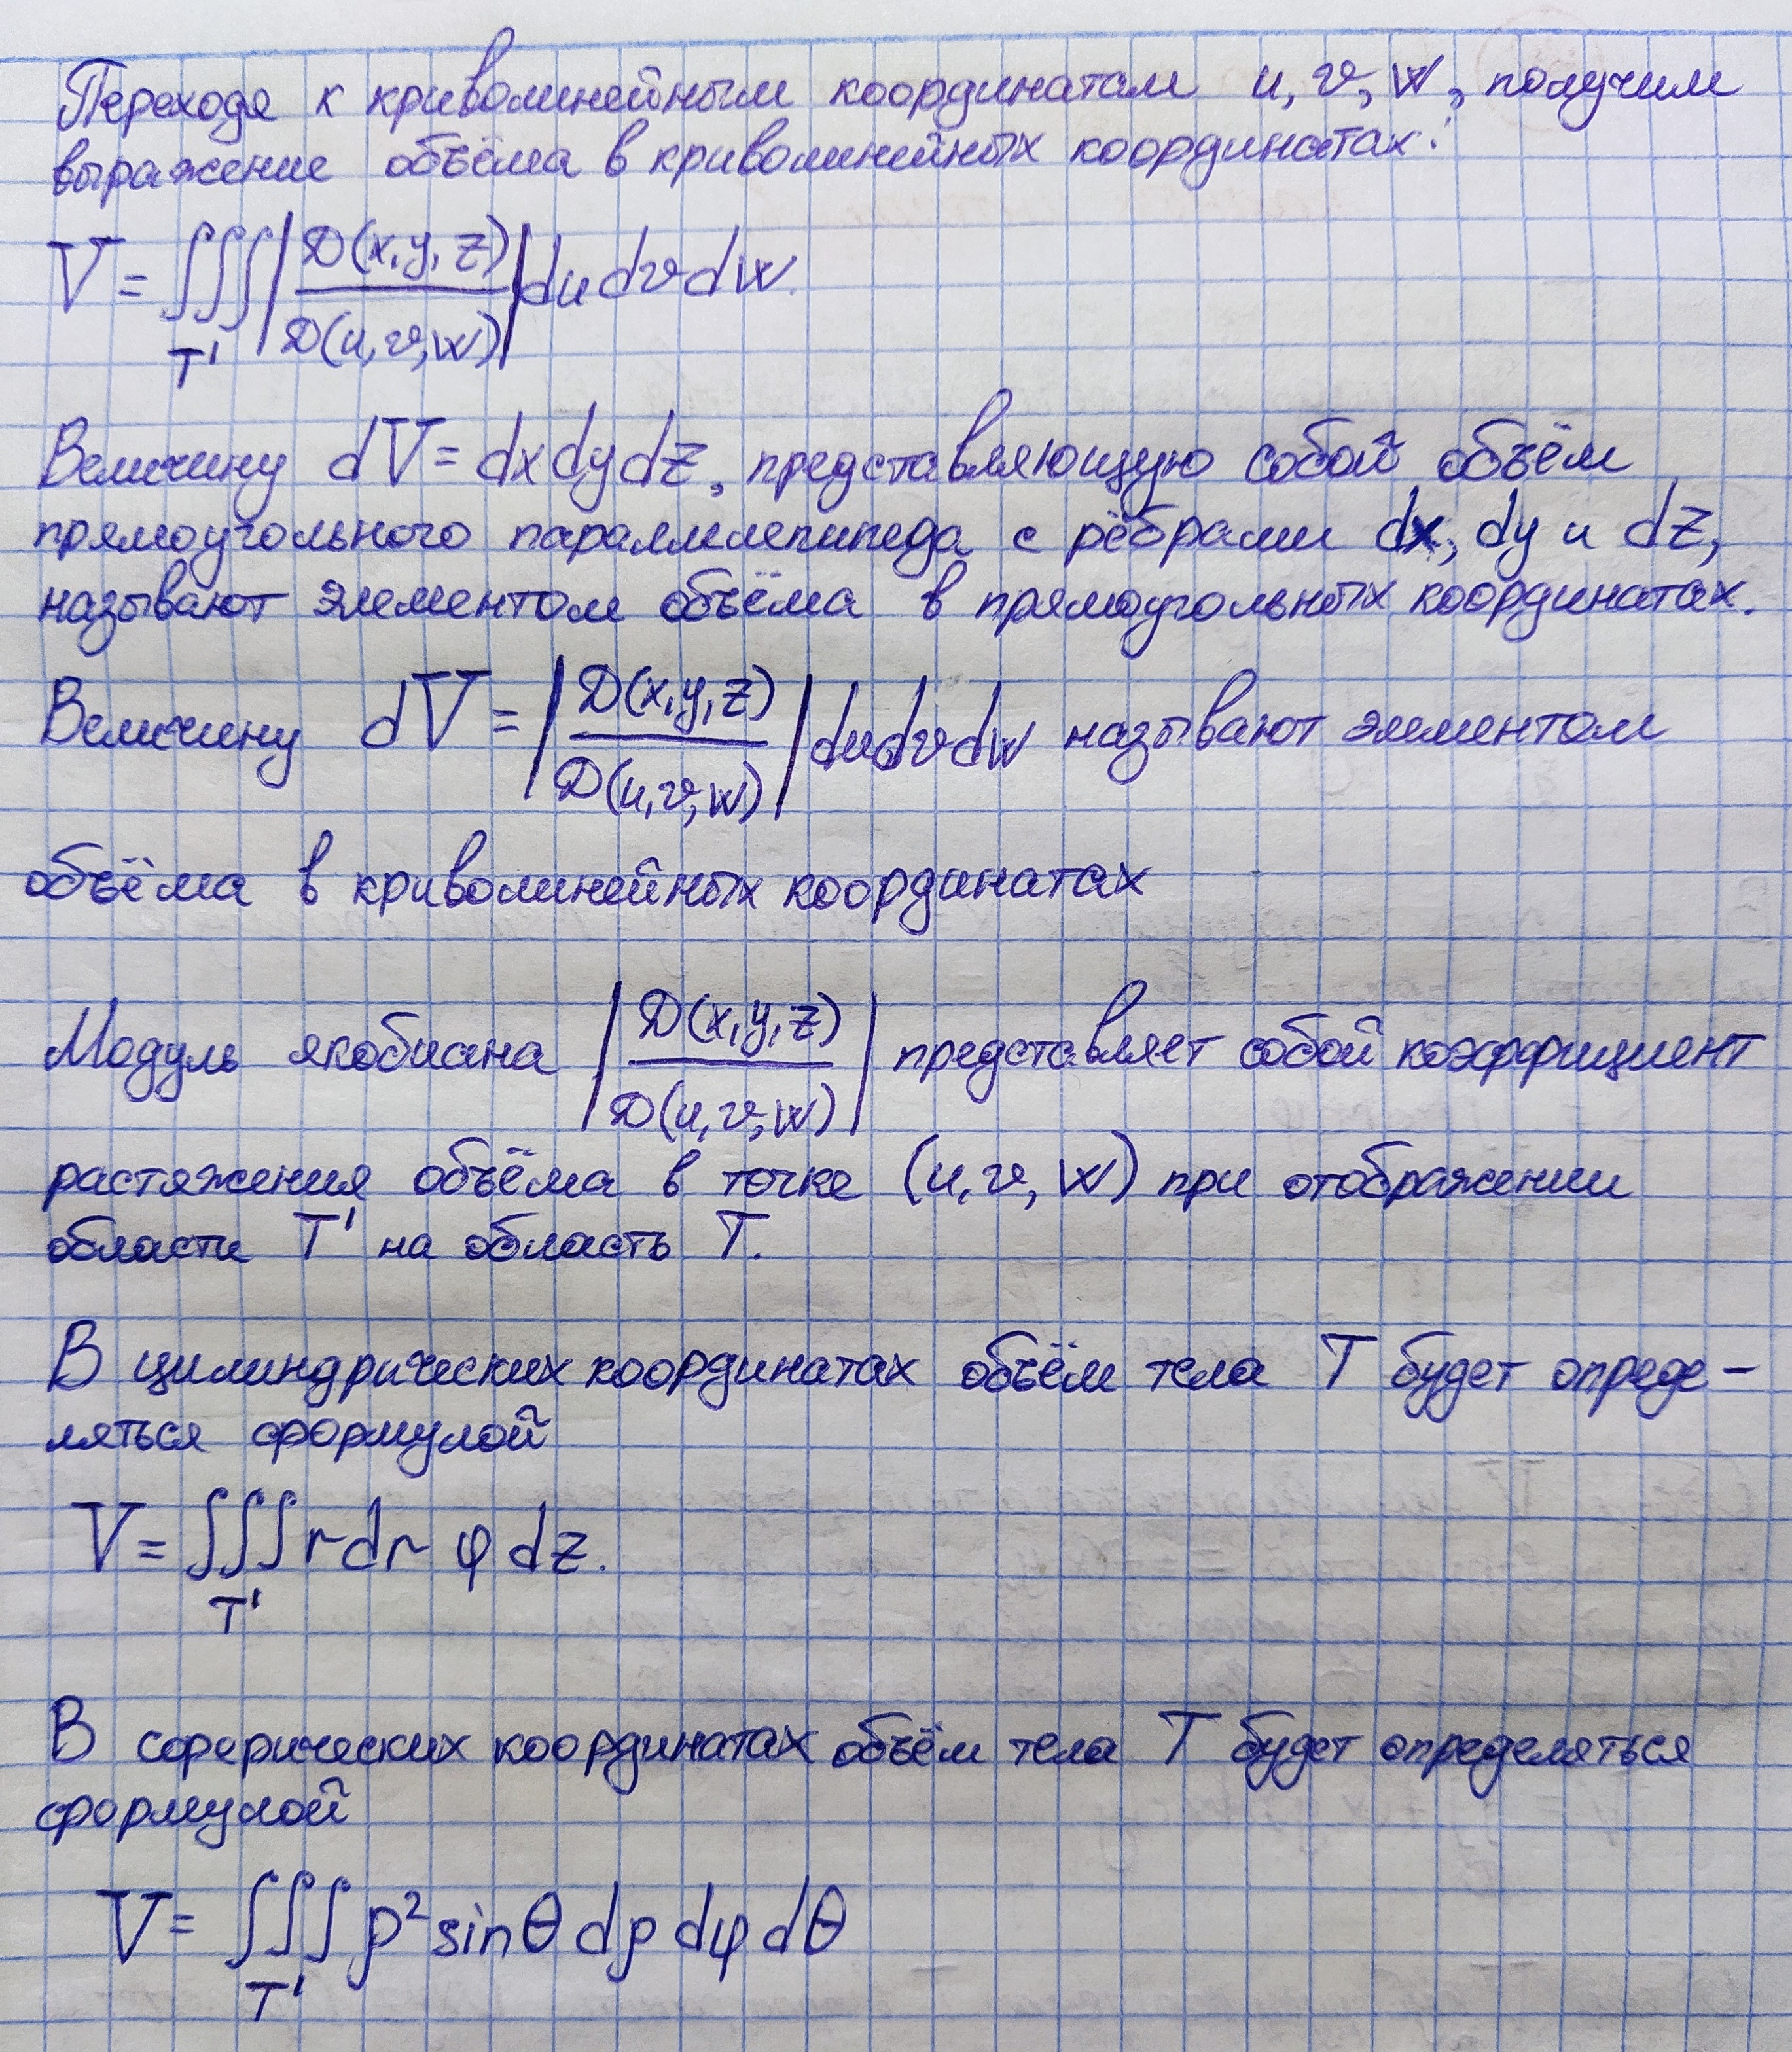 Переходя к криволинейным координатам u, v, w, получим
выражение объёма в криволинейных координатах:
V = ∭_{T'} |D(x,y,z)/D(u,v,w)| du dv dw.
Величину dV = dx dy dz, представляющую собой объём
прямоугольного параллелепипеда с рёбрами dx, dy и dz,
называют элементом объёма в прямоугольных координатах.
Величину dV = |D(x,y,z)/D(u,v,w)| du dv dw называют элементом
объёма в криволинейных координатах
Модуль якобиана |D(x,y,z)/D(u,v,w)| представляет собой коэффициент
растяжения объёма в точке (u,v,w) при отображении
области T' на область T.
В цилиндрических координатах объём тела T будет опреде-
ляться формулой
V = ∭_{T'} r dr φ dz.
В сферических координатах объём тела T будет определяться
формулой
V = ∭_{T'} ρ² sinθ dρ dφ dθ